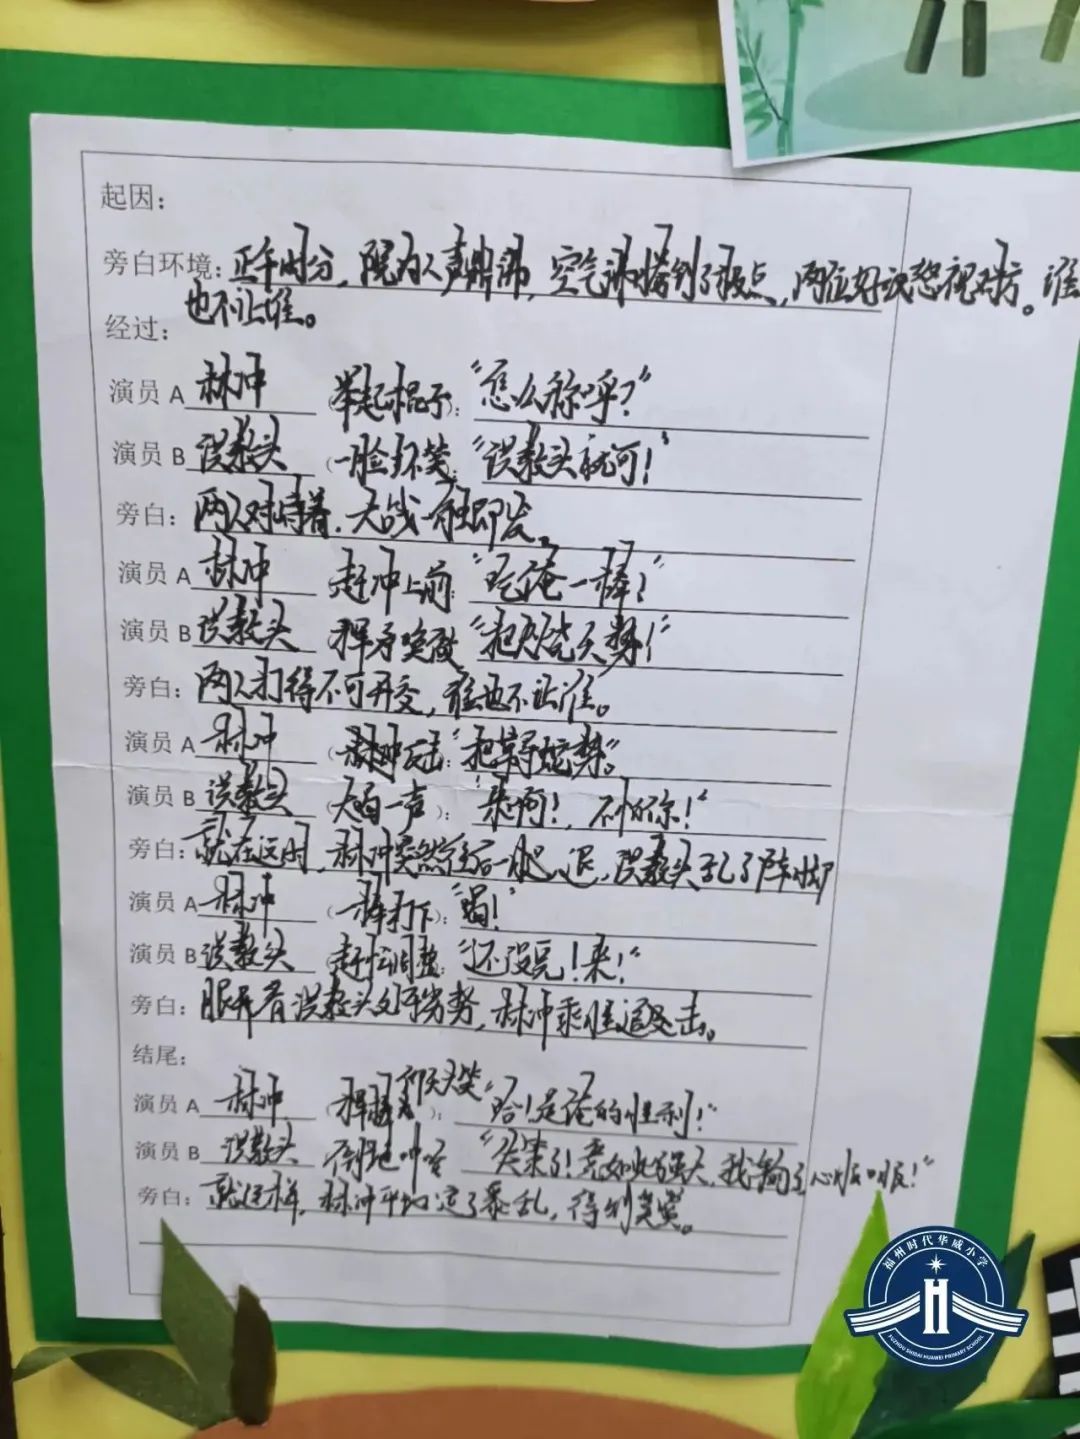 起因：
旁白环境：正午时分，院内人声鼎沸，空气沸腾到了极点，两位好汉怒视对方。谁
也不让谁。
经过：
演员A 林冲 （举起棍子）："怎么称呼？"
演员B 洪教头 （一脸坏笑："洪教头就可！"
旁白：两人对峙着，大战一触即发。
演员A 林冲 赶冲上前："吃俺一棒！"
演员B 洪教头 "把火烧天势！"
旁白：两人打得不可开交，谁也不让谁。
演员A 林冲 （林冲反击："把草寻蛇势。"
演员B 洪教头 （大 一声）："来啊！，不怕你！"
旁白：就在这时，林冲突然往后一退，洪教头乱了阵脚
演员A 林冲 （一棒打下）："喝！"
演员B 洪教头 （赶忙调整："还没完！来！"
旁白：眼看着洪教头处于劣势，林冲乘胜追击。
结尾：
演员A 林冲 （仰天大笑）："哈！是俺的胜利！"
演员B 洪教头 倒地 "失策了！竟如此强大，我输了心服口服！"
旁白：就这样，林冲平定了暴乱，得到奖赏。
福州时代华威小学
FUZHOU SHIDAI HUAWEI PRIMARY SCHOOL